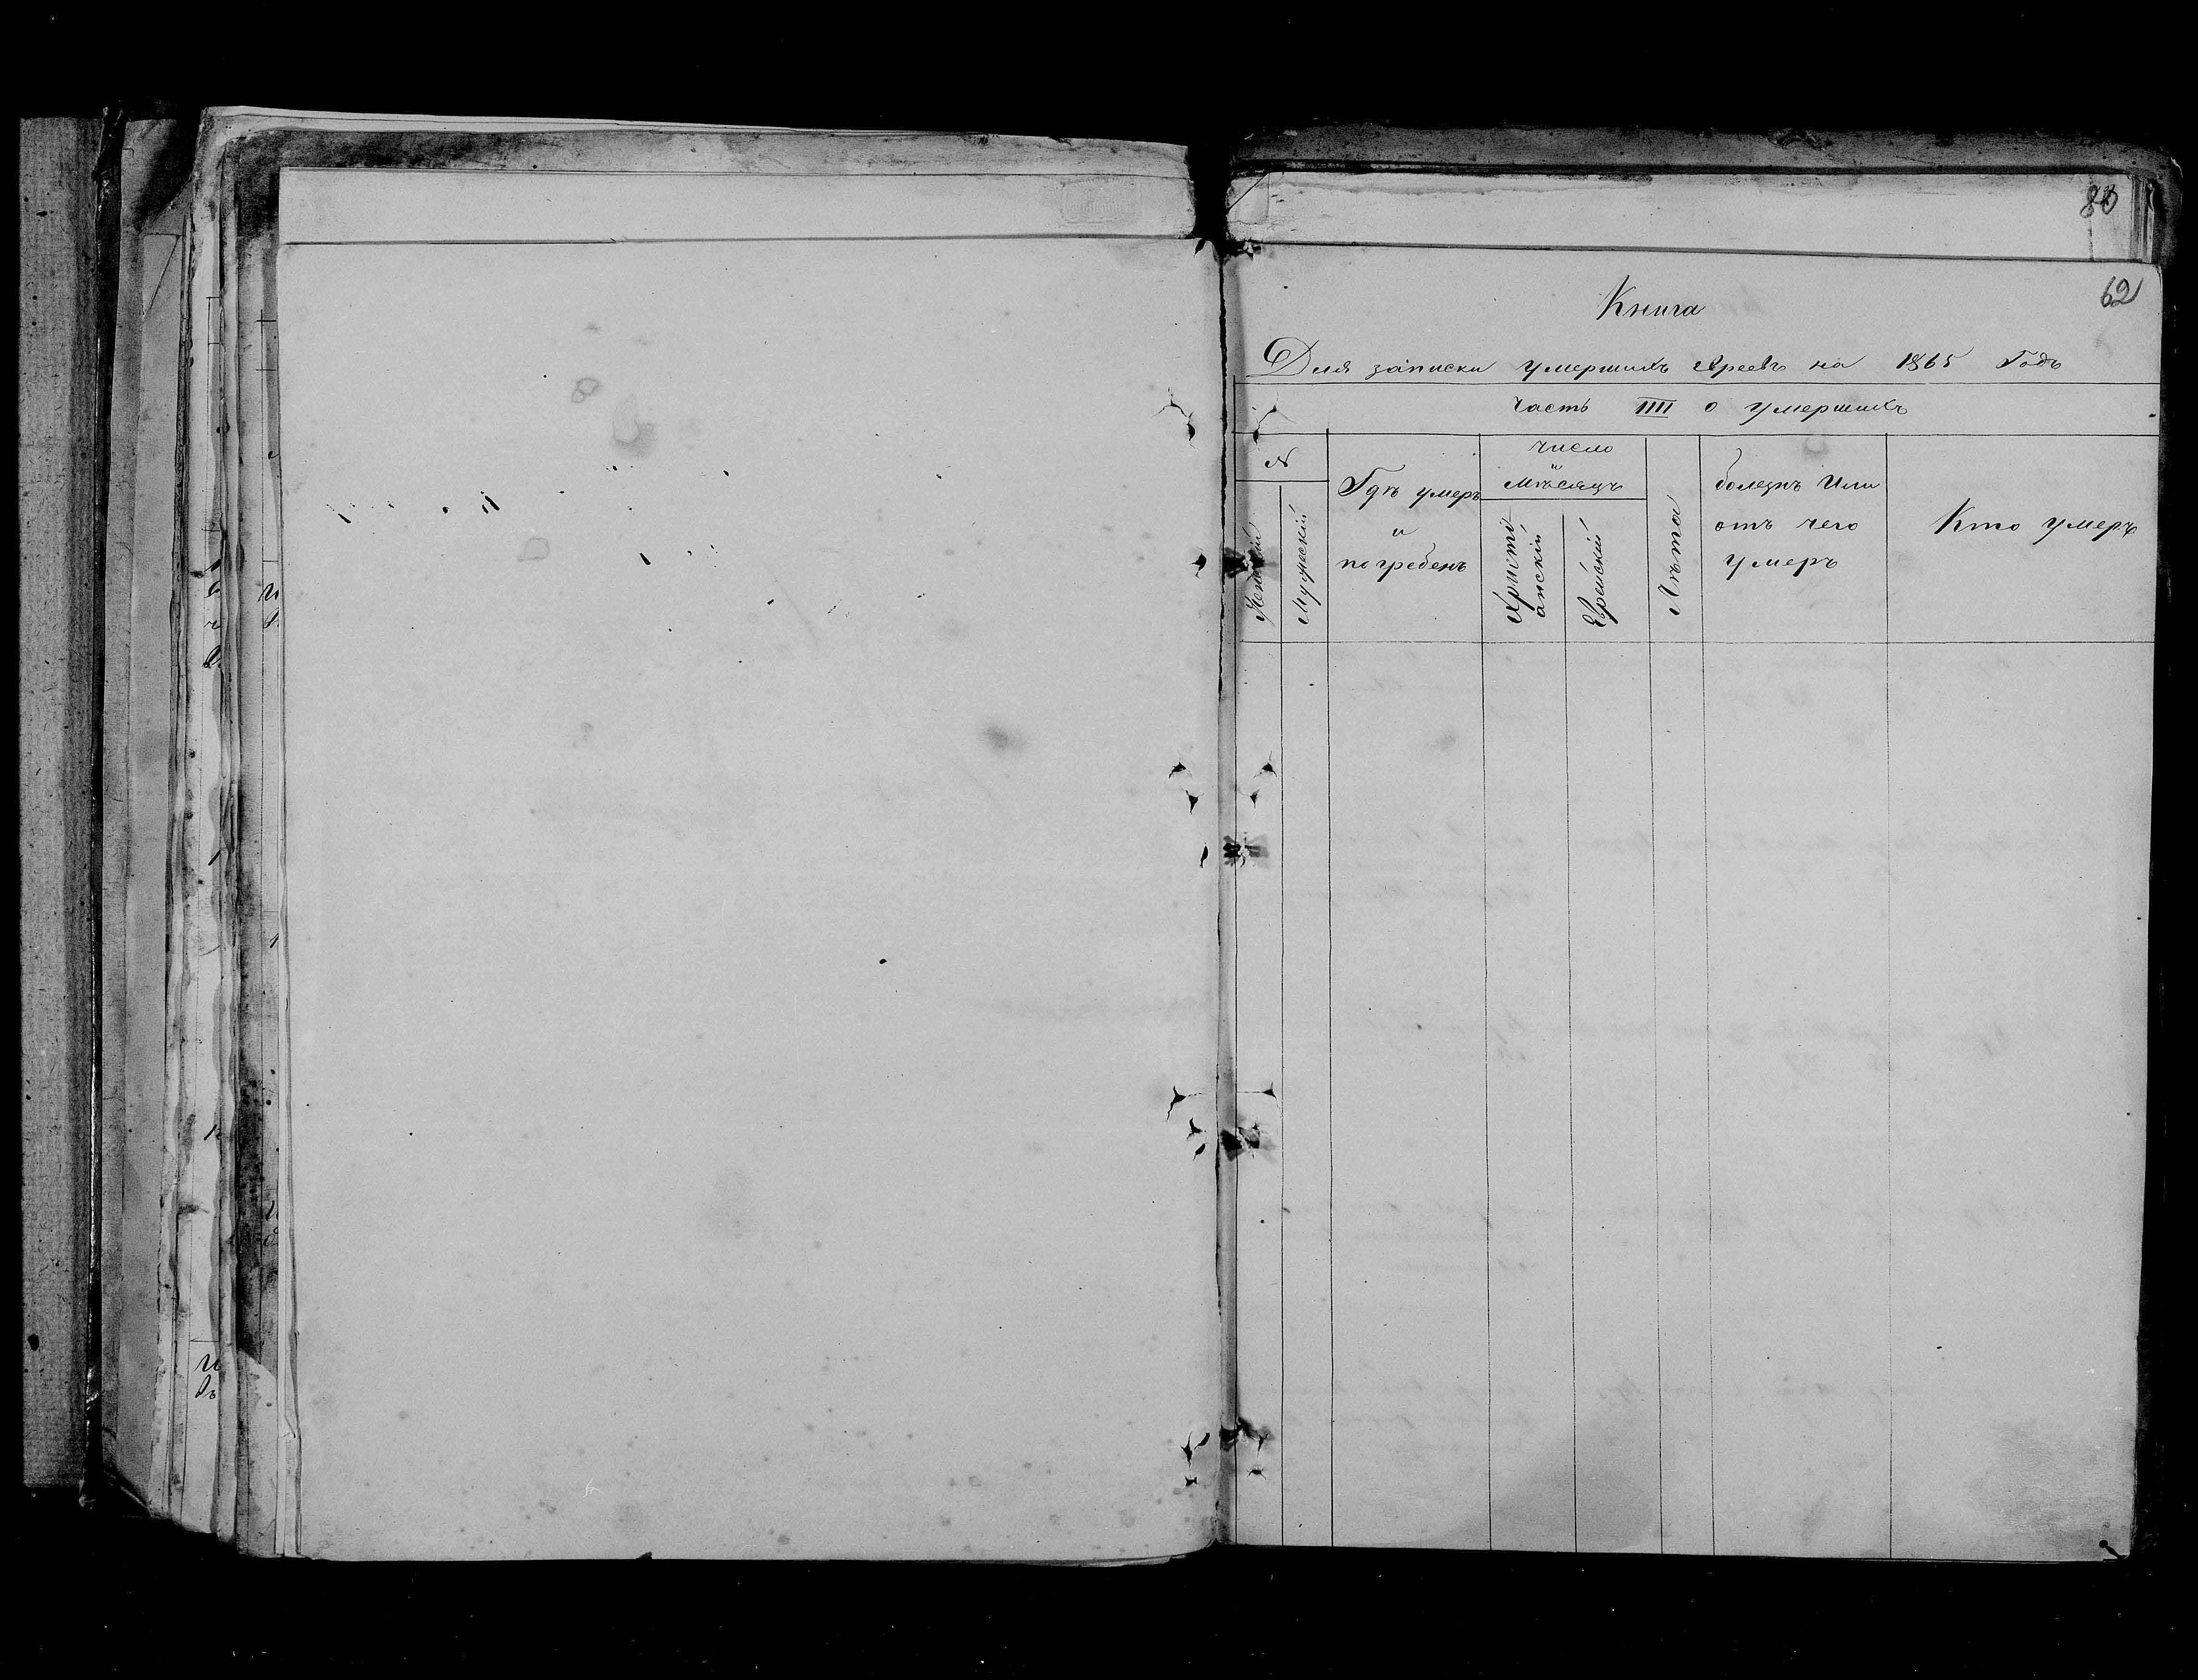 80
62
Книга
Для записки умершихъ Евреевъ на 1865 Годъ
Часть IIII о умершихъ
№
Женскій
Мужескій
Гдѣ умеръ
и
погребенъ
число
и
Мѣсяцъ
Христі
анскій
Еврейскій
Лѣта
болезнь Или
отъ чего
умеръ
Кто умеръ